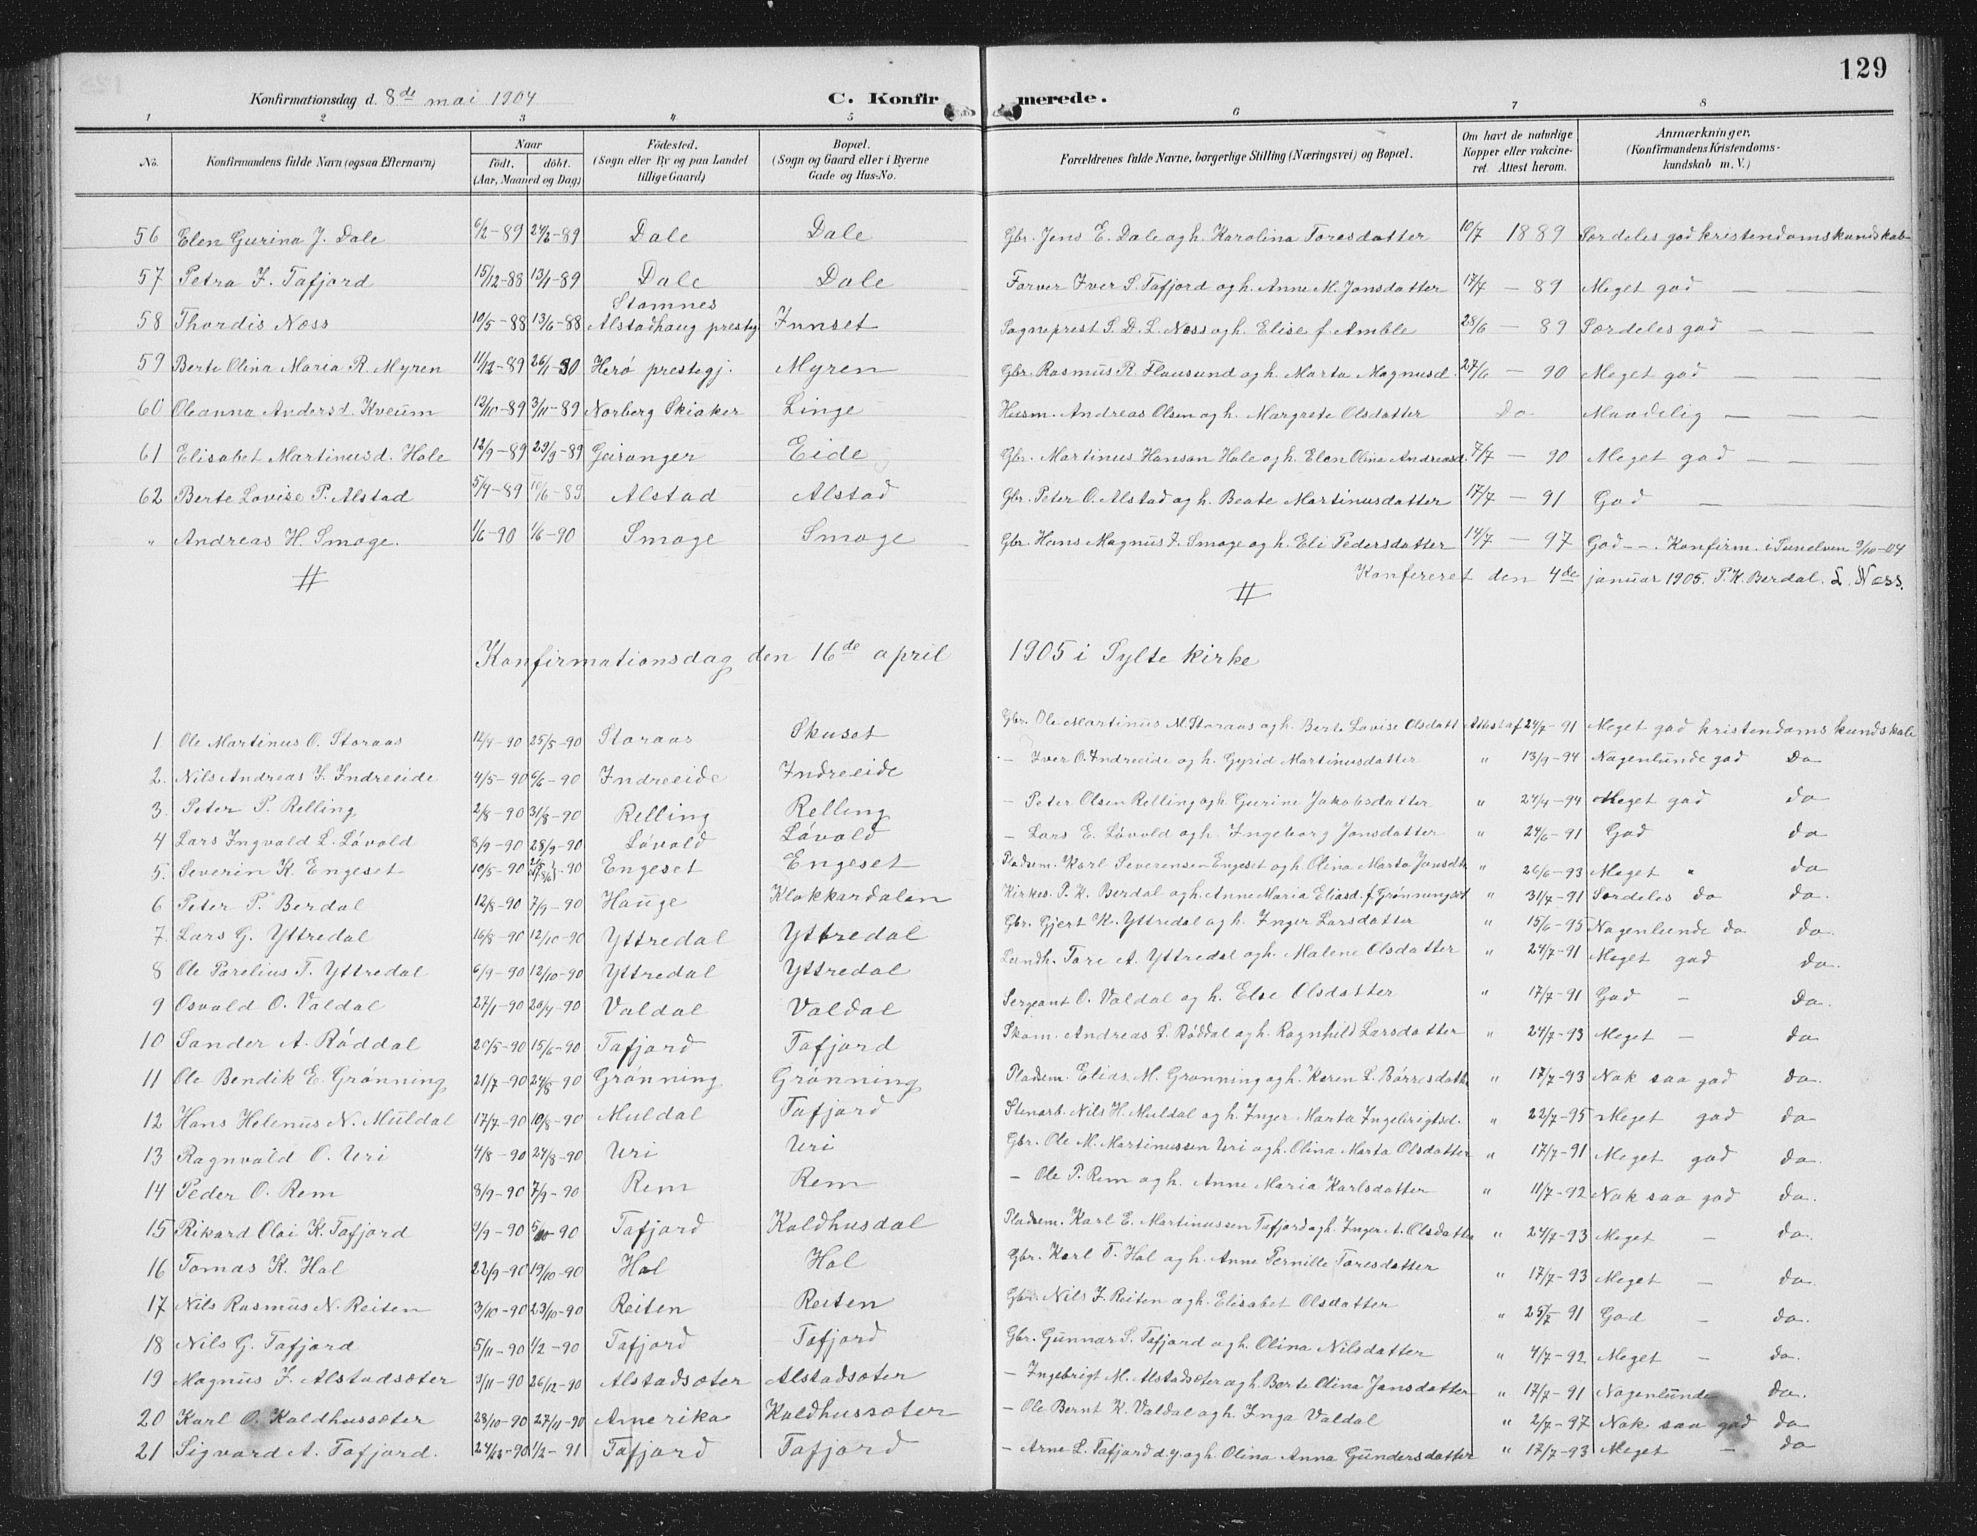 129
Konfirmationsdag d. 8de mai 1904 C. Konfirmerede.
1 2 3 4 5 6 7 8
No. Konfirmandens fulde Navn (ogsaa Efternavn) Naar födt. döbt. (Aar, Maaned og Dag) Födested. (Sogn eller By og paa Landet tillige Gaard) Bopæl. (Sogn og Gaard eller i Byerne Gade og Hus-No. Forældrenes fulde Navne, borgerlige Stilling (Næringsvei) og Bopæl. Om havt de naturlige Kopper eller vakcineret. Attest herom. Anmærkninger. (Konfirmandens Kristendomskundskab m. V.)
56 Elen Gurina J. Dale 6/2-89 24/2-89 Dale Dale Gbr. Jens E. Dale og h. Karolina Toresdatter 10/7 1889 Særdeles god kristendomskundskab
57 Petra I. Tafjord 15/12-88 13/1-89 Dale Dale Farver Iver S. Tafjord og h. Anne M. Jonsdatter 17/7 - 89 Meget god — —
58 Thordis Næss 10/5-88 13/6-88 Stamnes Alstadhaug prestg Innset Sogneprest S. D. L. Næss og h. Elise f. Amble 28/6 - 89 Særdeles god — —
59 Berte Olina Maria R. Myren 11/12-89 26/1-90 Herø prestegj. Myren Gbr. Rasmus R. Flausund og h. Marta Magnusd. 27/6 - 90 Meget god — —
60 Oleanna Andersd. Kveum 12/10-89 3/11-89 Norberg Skiaker Linge Husm. Andreas Olsen og h. Margrete Olsdatter Do Maadelig — — —
61 Elisabet Martinusd. Hole 12/9-89 29/9-89 Geiranger Eide Gbr. Martinus Hanson Hole og h. Elen Olina Andreasd. 7/7 - 90 Meget god — —
62 Berte Lovise P. Alstad 5/4-89 10/6-89 Alstad Alstad Gbr. Peter O. Alstad og h. Beate Martinusdatter 17/7 - 91 God — —
" Andreas H. Smoge. 1/6-90 1/6-90 Smoge Smoge Gbr. Hans Magnus I. Smoge og h. Eli Pedersdatter 14/7 - 97 God — . Konfirm. i Sunelven 9/10-04
Konfereret den 4de januar 1905. P. K. Berdal. L. Næss.
Konfirmationsdag den 16de april 1905 i Sylte kirke
1 Ole Martinus O. Storaas 12/4-90 25/5-90 Storaas Skuset Gbr. Ole Martinus M. Storaas og h. Berte Lovise Olsdatt Attest af 24/7-91 Meget god kristendomskundskab
2. Nils Andreas I. Indreeide 4/5-90 6/6-90 Indreeide Indreeide — Iver O. Indreeide og h. Gyrid Martinusdatter " 13/9-94 Nogenlunde god Do
3. Peter P. Relling 2/8-90 31/8-90 Relling Relling — Peter Olsen Relling og h. Gurine Jakobsdatter " 24/4-94 Meget god do
4 Lars Ingvald L. Løvold 8/9-90 28/9-90 Løvold Løvold — Lars E. Løvold og h. Ingeborg Jonsdatter " 24/6-91 God do
5. Severin K. Engeset 10/5-90 -90 Engeset Engeset Pladsm. Karl Severensen Engeset og h. Olina Marta Jonsdtr " 26/6-93 Meget " do
6 Peter P. Berdal 12/8-90 7/9-90 Hauge Klokkardalen Kirkes. P. K. Berdal og h. Anne Maria Eliasd. f Grønningset " 31/7-91 Særdeles do do.
7. Lars G. Yttredal 16/8-90 12/10-90 Yttredal Yttredal Gbr. Gjert K. Yttredal og h. Inger Larsdatter " 15/6-95 Nogenlunde do do.
8 Ole Parelius T. Yttredal 6/9-90 12/10-90 Yttredal Yttredal Landh. Tore A. Yttredal og h. Malene Olsdatter " 24/7-91 Meget god do.
9 Osvald O. Valdal 27/1-90 20/4-90 Valdal Valdal Sergeant O. Valdal og h. Else Olsdatter " 17/7-91 God — Do.
10 Sander A. Røddal 20/5-90 15/6-90 Tafjord Tafjord Skom. Andreas S. Røddal og h. Ragnhild Larsdatter " 24/7-93 Meget — do
11 Ole Bendik E. Grønning 21/7-90 24/8-90 Grønning Grønning Pladsm. Elias M. Grønning og h. Karen L. Børresdatt " 17/7-93 Nok saa god do.
12 Hans Helenus N. Muldal 17/7-90 10/8-90 Muldal Tafjord Stenarb. Nils H. Muldal og h. Inger Marta Ingebrigtsd. " 22/7-95 Meget god do
13 Ragnvald O. Uri 4/8-90 24/8-90 Uri Uri Gbr. Ole M. Martinussen Uri og h. Olina Marta Olsdatter " 17/7-91 Meget god do.
14 Peder O. Rem 8/9-90 7/9-90 Rem Rem — Ole P. Rem og h. Anne Maria Karlsdatter " 11/7-92 Nok saa god do.
15 Rikard Olai K. Tafjord 9/9-90 5/10-90 Tafjord Kaldhusdal Pladsm. Karl E. Martinussen Tafjord og h. Inger A. Olsdatter " 24/7-93 Meget — do.
16 Tomas K. Hol 22/9-90 19/10-90 Hol Hol Gbr. Karl T. Hol og h. Anne Pernille Toresdatter " 17/7-93 Meget — do.
17 Nils Rasmus N. Reiten 3/10-90 23/10-90 Reiten Reiten Gbr. Nils I. Reiten og h. Elisabet Olsdatter " 25/7 91 God — do.
18 Nils G. Tafjord 5/11-90 1/2-90 Tafjord Tafjord Gbr. Gunnar S. Tafjord og h. Olina Nilsdatter " 4/7-92 Meget — do.
19 Magnus I. Alstadsæter 9/11-90 26/12-90 Alstadsæter Alstadsæter — Ingebrigt M. Alstadsæter og h. Berte Olina Jonsdatter " 17/7-91 Nogenlunde do.
20 Karl O. Kaldhussæter 28/10-90 27/11-90 Amerika Kaldhussæter — Ole Bernt K. Valdal og h. Inga Valdal " 2/7-97 Nok saa god do
21 Sigvard A. Tafjord. 24/12-90 1/2-91 Tafjord Tafjord — Arne L. Tafjord d.y. og h. Olina Anna Gundersdatter " 17/7-93 Meget — do